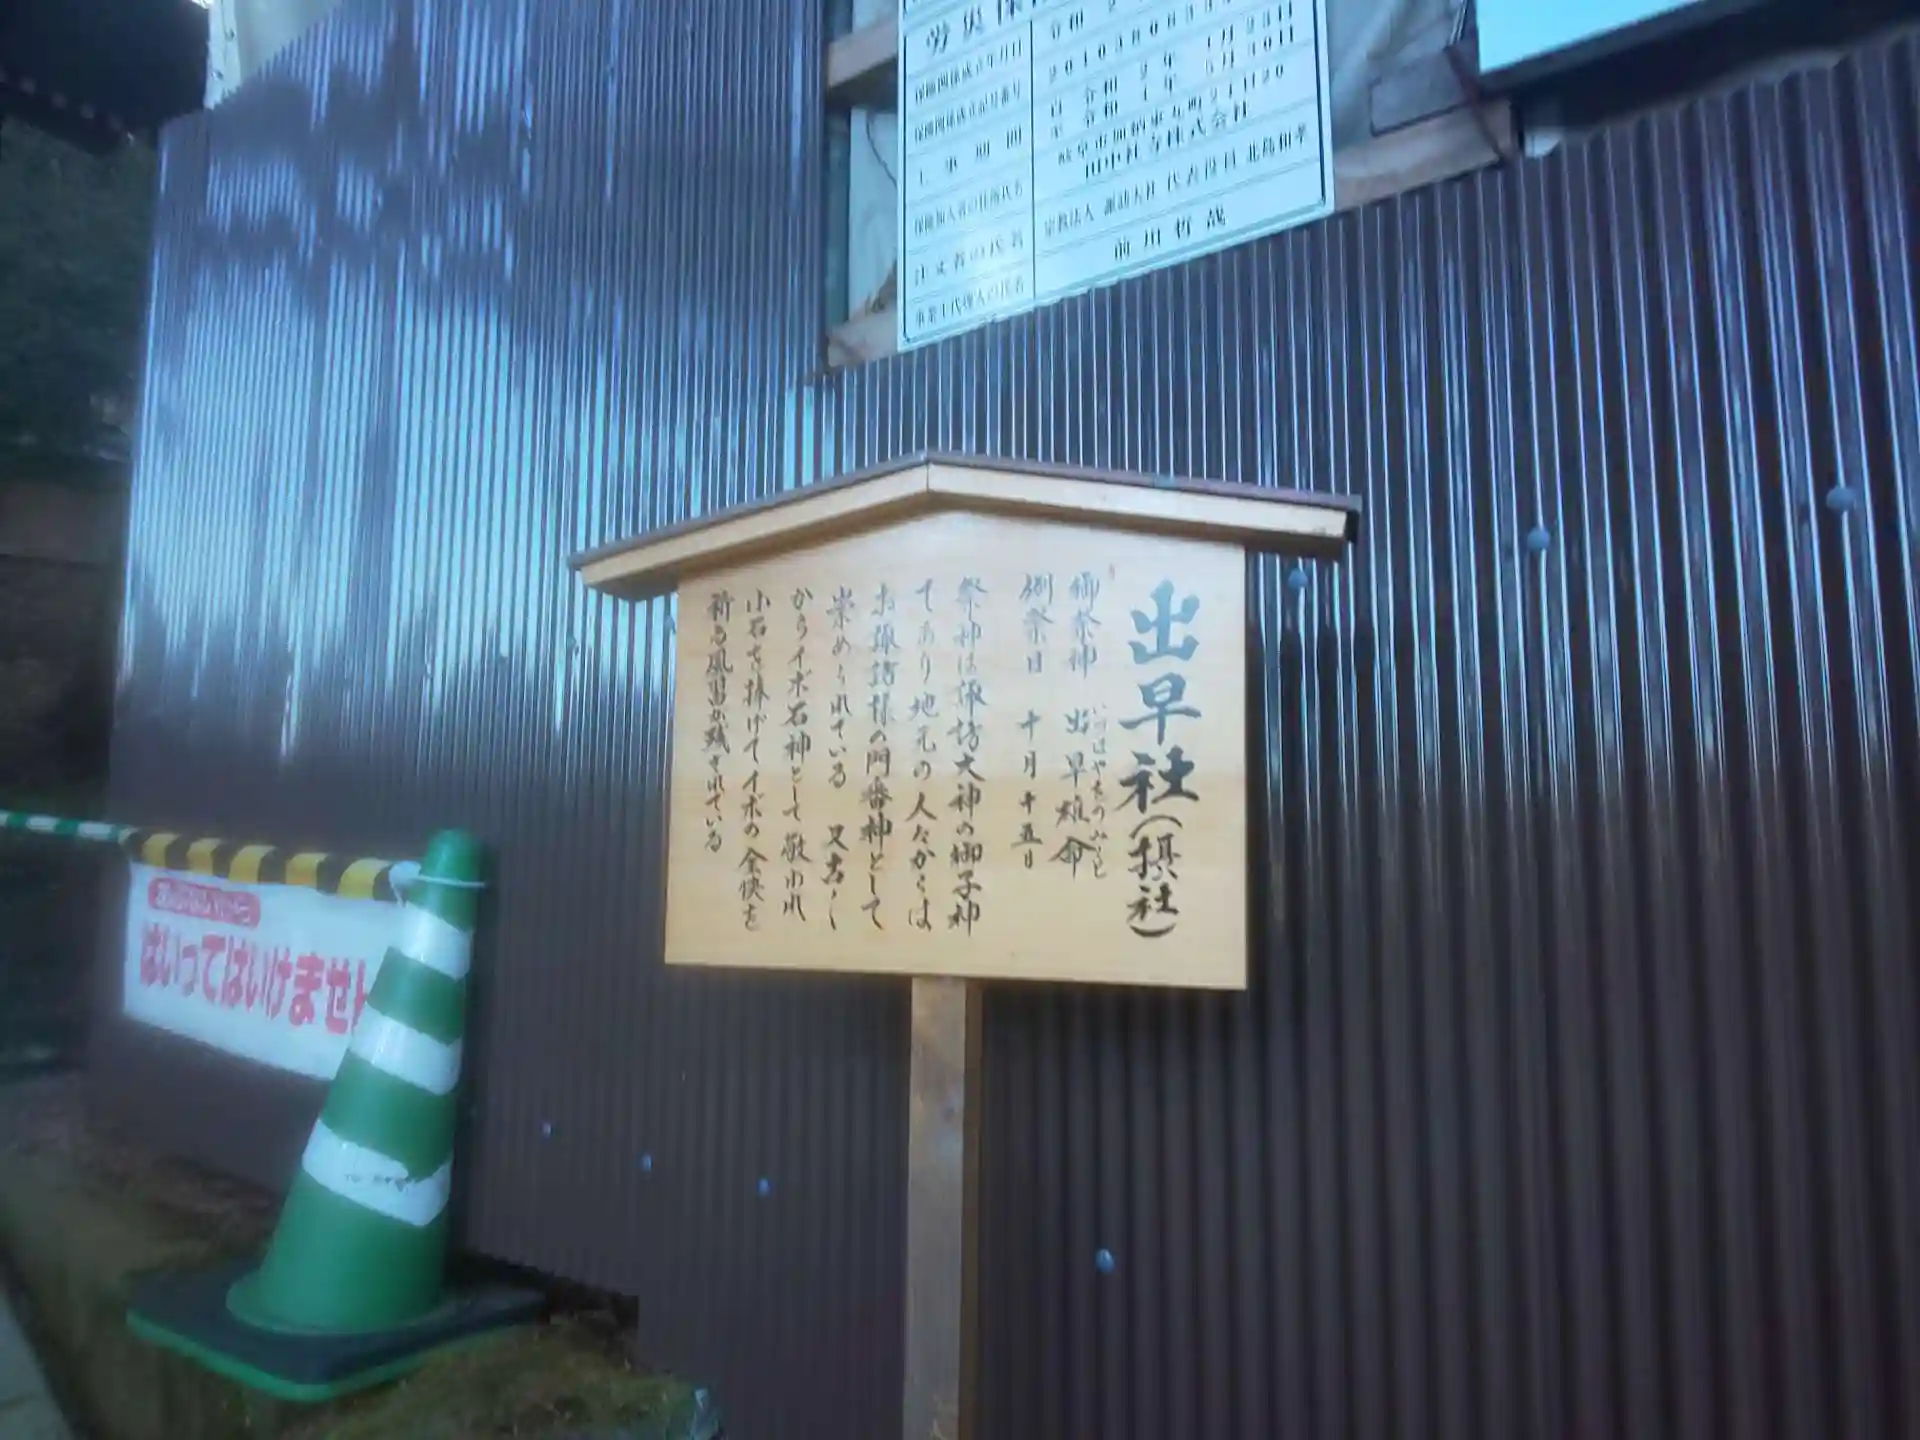 出早社(摂社)
御祭神 出早雄命
いづはやをのみこと
例祭日 十月十五日
祭神は諏訪大神の御子神
であり地元の人々からは
お諏訪様の門番神として
崇められている 又古く
からイボ石神として敬われ
小石を捧げてイボの全快を
祈る風習が残されている
労災保
保険関係成立年月日
保険関係成立記号番号
工事期間 自 令和 2年 1月23日
至 令和
保険加入者の住所氏名
田中社寺株式会社
注文者の氏名 宗教法人 諏訪大社 代表役員 北島和孝
事業主代理人の氏名 前川哲哉
はいってはいけません